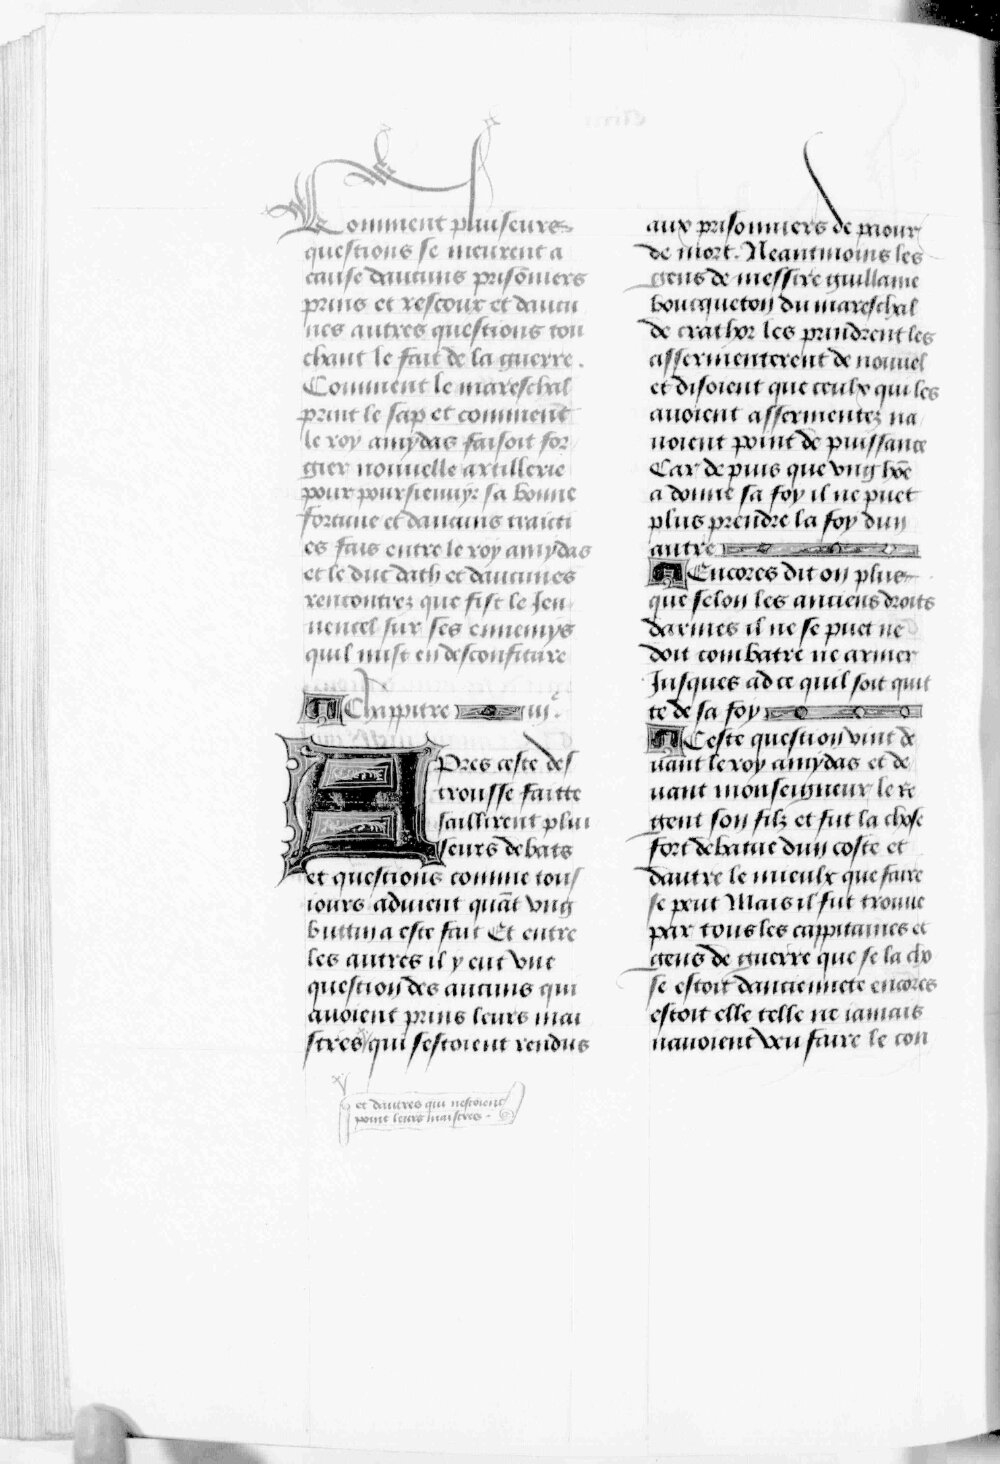 Comment pluiseures
questions se meurent a
cause daucuns prisõniers
prins et rescoux et daucu
nes autres questions tou
chant le fait de la guerre.
Comment le mareschal
print le sap et comment
le roy amydas faisoit for
gier nouuelle artillerie
pour poursieuuyr sa bonne
fortune et daucuns traicti
es fais entre le roy amydas
et le duc dath et daucunes
rencontrez que fist le Jeu
uencel sur ses ennemys
quil mist en desconfiture
Chappitre iiiᵉ.
APres ceste des
trousse faitte
saillirent plui
seurs debats
et questions comme tous
iours aduient quãt vng
buttin a este fait Et entre
les autres il y eut vne
question des aucuns qui
auoient prins leurs mai
stres qui sestoient rendus
et dautres qui nestoient
point leurs maistres.
aux prisonniers de paour
de mort. Neantmoins les
gens de messire guillame
boucqueton du mareschal
de crathor les prindrent les
assermenterent de nouuel
et disoient que ceulx qui les
auoient assermentez na
uoient point de puissance
Car depuis que vng hõe
a donne sa foy il ne puet
plus prendre la foy dun
autre
Encores dit on plus
que selon les anciens droits
darmes il ne se puet ne
doit combatre ne armer
Jusques ad ce quil soit quit
te de sa foy
Ceste question vint de
uant le roy amydas et de
uant monseigneur le re
gent son filz et fut la chose
fort debatue dun coste et
dautre le mieulx que faire
se peut Mais il fut trouue
par tous les cappitaines et
gens de guerre que se la cho
se estoit danciennete encores
estoit elle telle ne iamais
nauoient veu faire le con